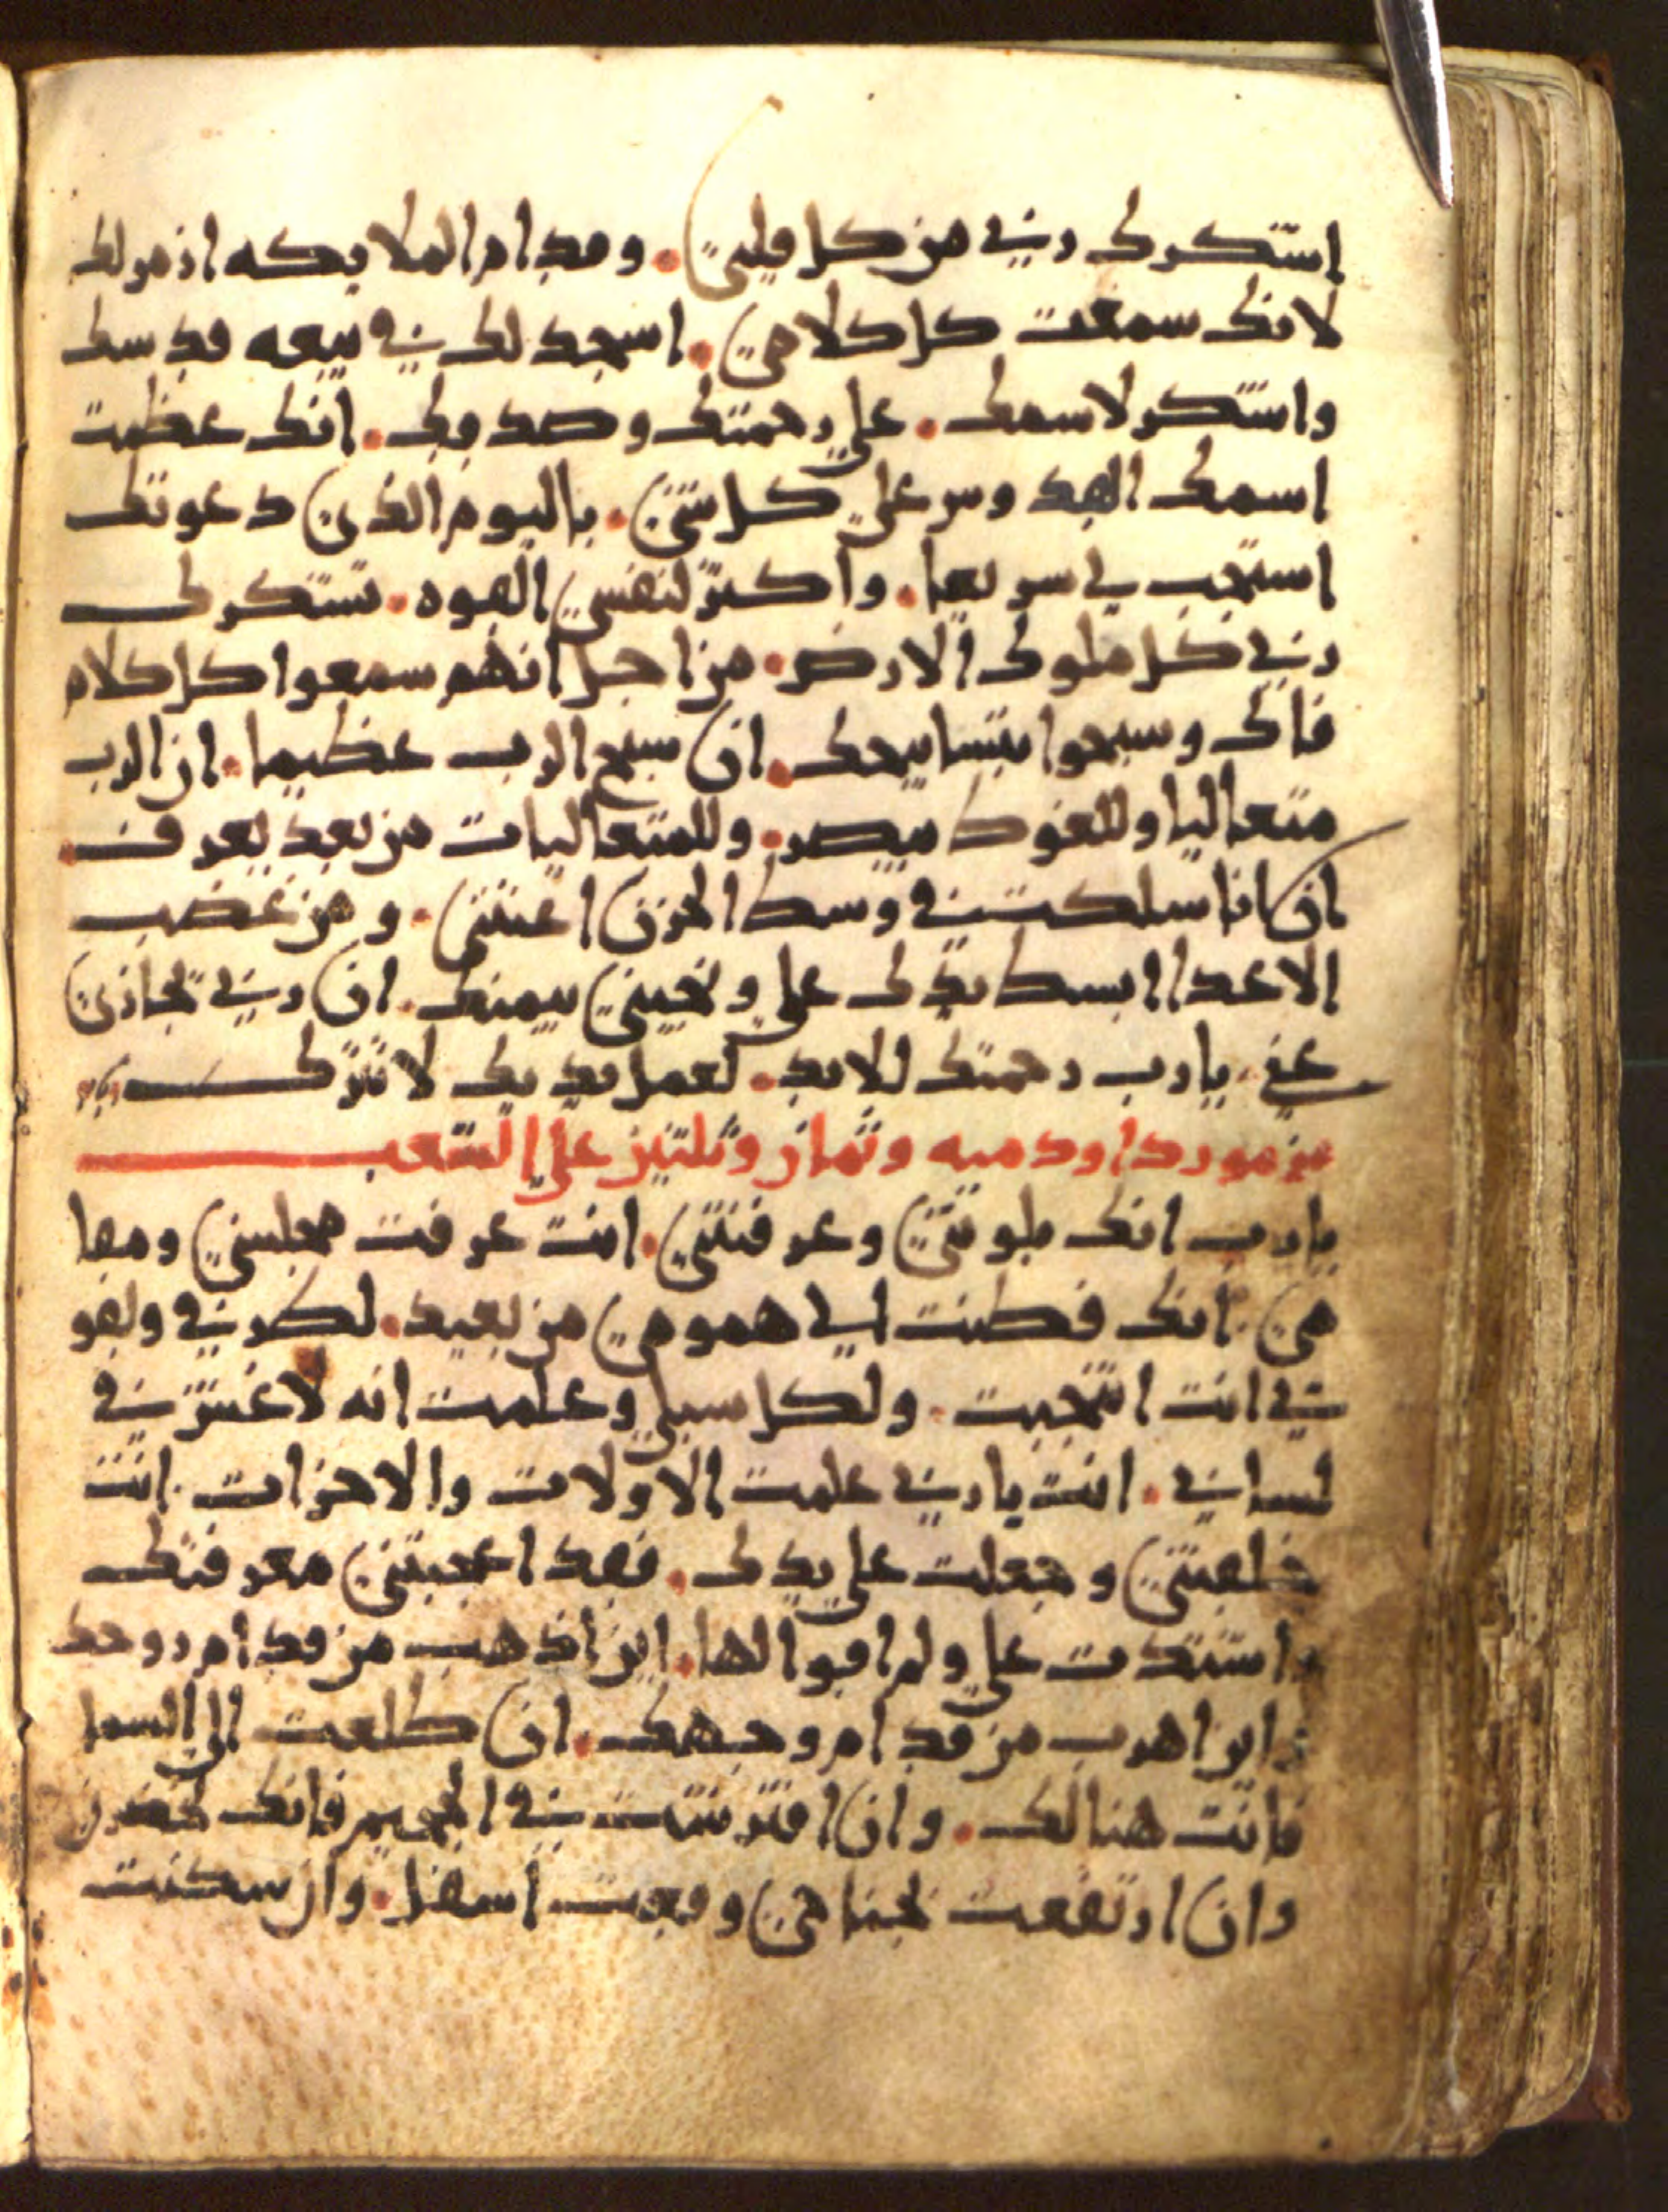 اشكرك ربي من كل قلبي. وقدام الملايكه ازمر لك
لانك سمعت كل كلامي. اسجد لك في بيعه قدسك
واشكر لاسمك. علي رحمتك وصدقك. انك عظمت
اسمك القدوس علي كل شي. باليوم الذي دعوتك
استجب لي سريعا. واكثر لنفسي القوه. تشكرك
ربي كل ملوك الارض. من اجل انهم سمعوا كل كلام
فاك وسبحوا بتسابيحك. ان سبح الرب عظيما. ان الرب
متعاليا وللغود مبصر. وللمتعاليات من بعد يعرف.
ان انا سلكت في وسط الحزن اعنتني. ومن غضب
الاعدا ابسط يدك علي ونجيني يمينك. ان ربي تجازي
عني. يارب رحمتك للابد. لعمل يديك لا تترك
مزمور داود ميه وثمان وثلثين علي الشعب
يارب انك بلوتني وعرفتني. انت عرفت مجلسي ومقا
مي. انك فطنت الي همومي من بعيد. لطريقي ولقو
تي انت انتجبت. ولكل سبلي وعلمت انه لا غش في
لساني. انت يا ربي علمت الاولات والاخرات. انت
خلقتني وجعلت علي يدك. فقد اعجبتني معرفتك
واشتدت علي ولم اقوا لها. اين اذهب من قدام روحك
واين اهرب من قدام وجهك. ان طلعت الي السما
فانت هنالك. وان افترشت في الجحيم فانك تحضرن
وان ارتفعت بجناحي وقعت اسفل. وان سكنت